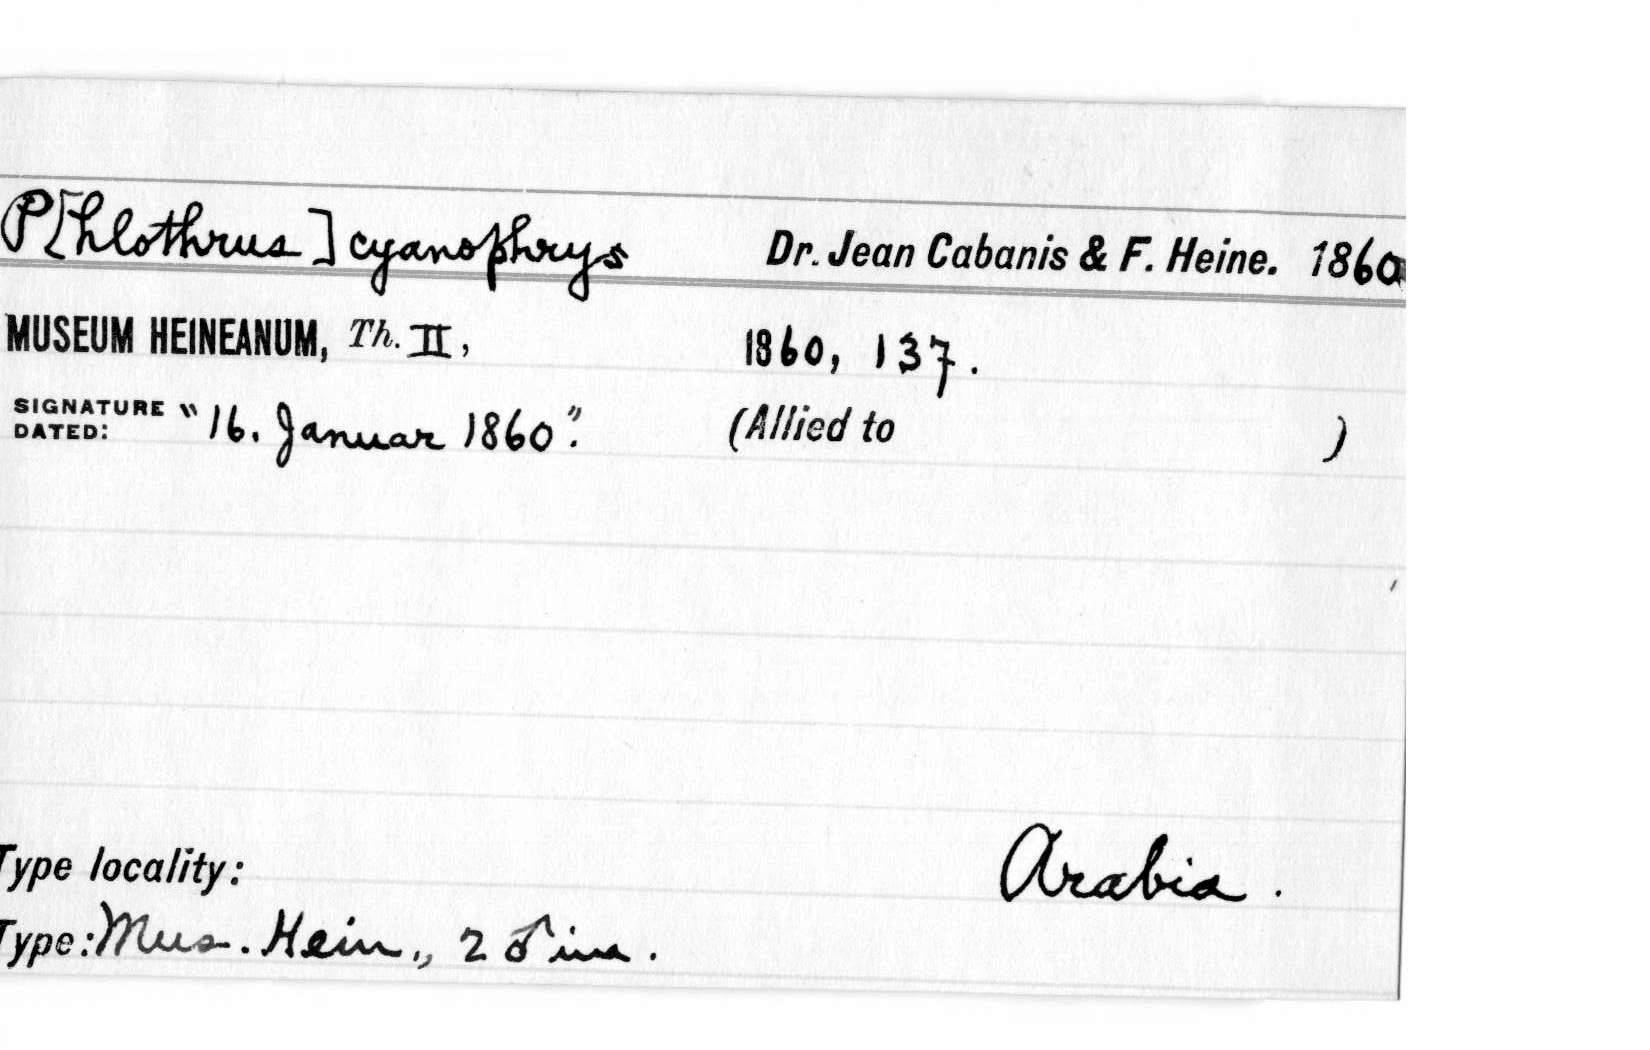 P[hlothrus] cyanophrys Dr. Jean Cabanis & F. Heine. 1860
MUSEUM HEINEANUM, Th. II, 1860, 137.
SIGNATURE DATED: "16. Januar 1860". (Allied to )
Type locality: Arabia.
Type: Mus. Hein., 2 ♂